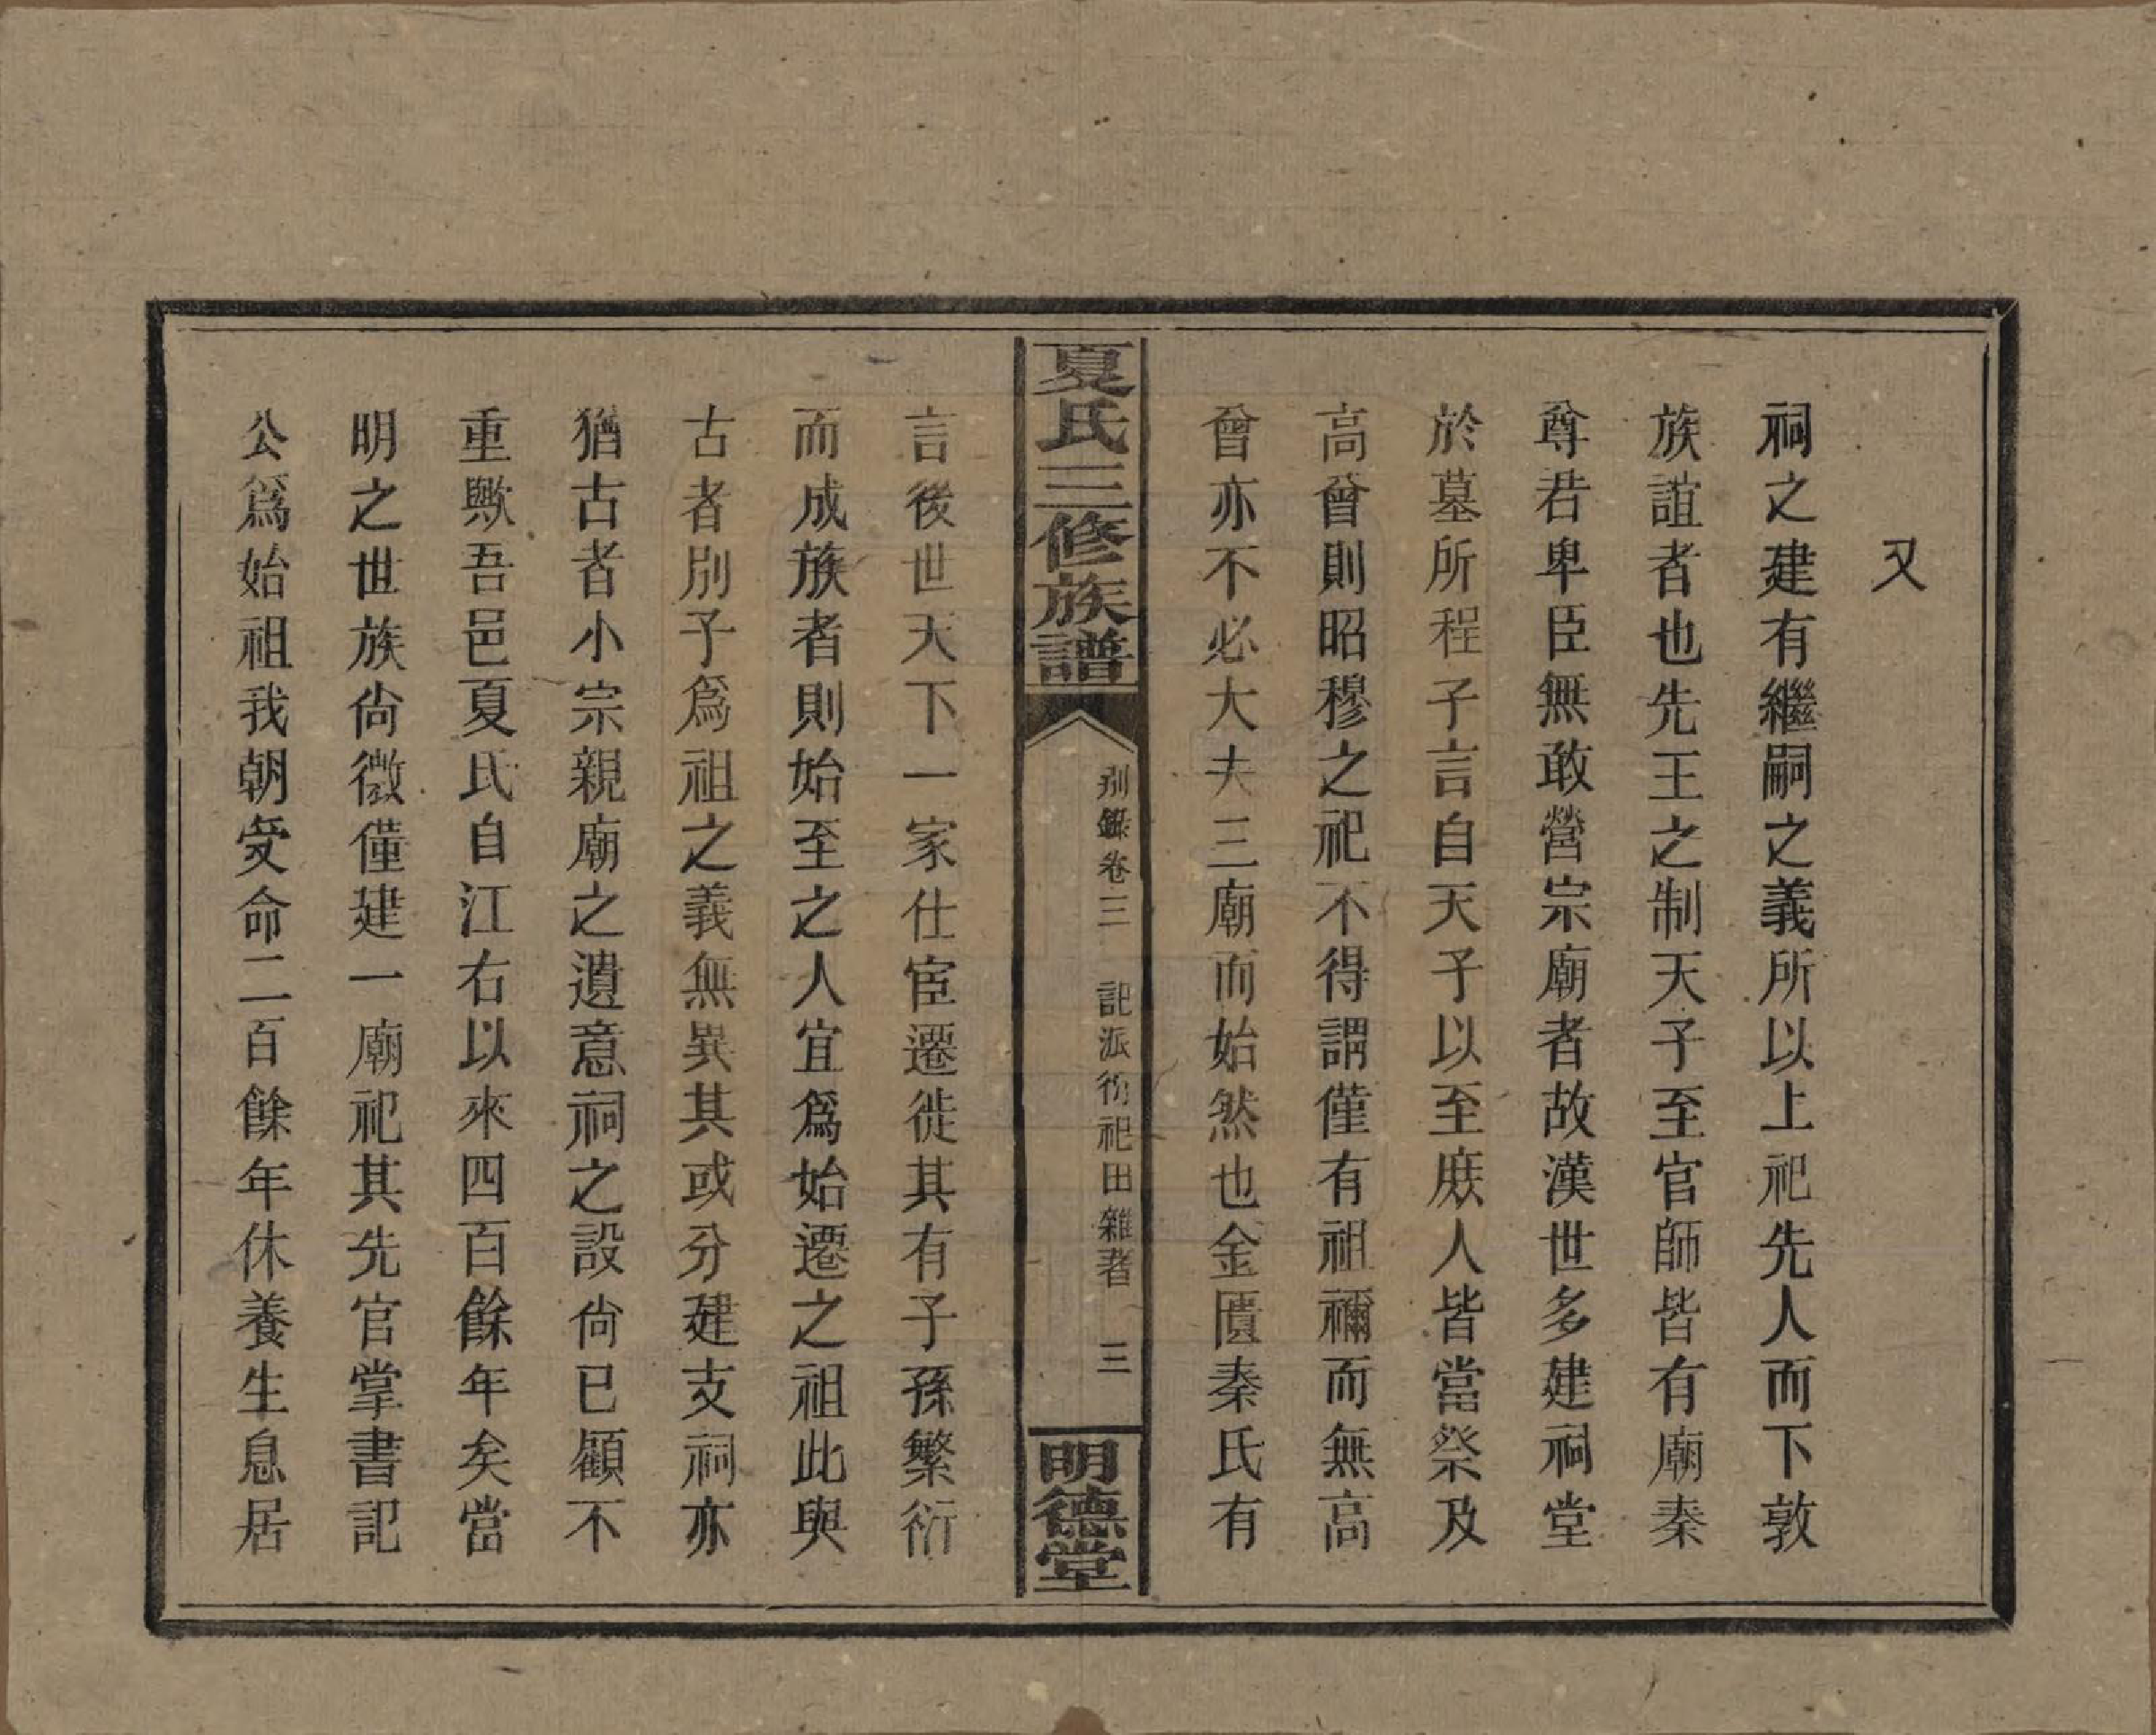 又
祠之建有繼嗣之義所以上祀先人而下敦
族誼者也先王之制天子至官師皆有廟秦
尊君卑臣無敢營宗廟者故漢世多建祠堂
於墓所程子言自天子以至庶人皆當祭及
高曾則昭穆之祀不得謂僅有祖禰而無高
曾亦不必大夫三廟而始然也金匱秦氏有
夏氏三修族譜
別錄卷三 記派衍祀田雜著 三
明德堂
言後世天下一家仕宦遷徙其有子孫繁衍
而成族者則始至之人宜爲始遷之祖此與
古者別子爲祖之義無異其或分建支祠亦
猶古者小宗親廟之遺意祠之設尙已顧不
重歟吾邑夏氏自江右以來四百餘年矣當
明之世族尙微僅建一廟祀其先官掌書記
公爲始祖我朝受命二百餘年休養生息居